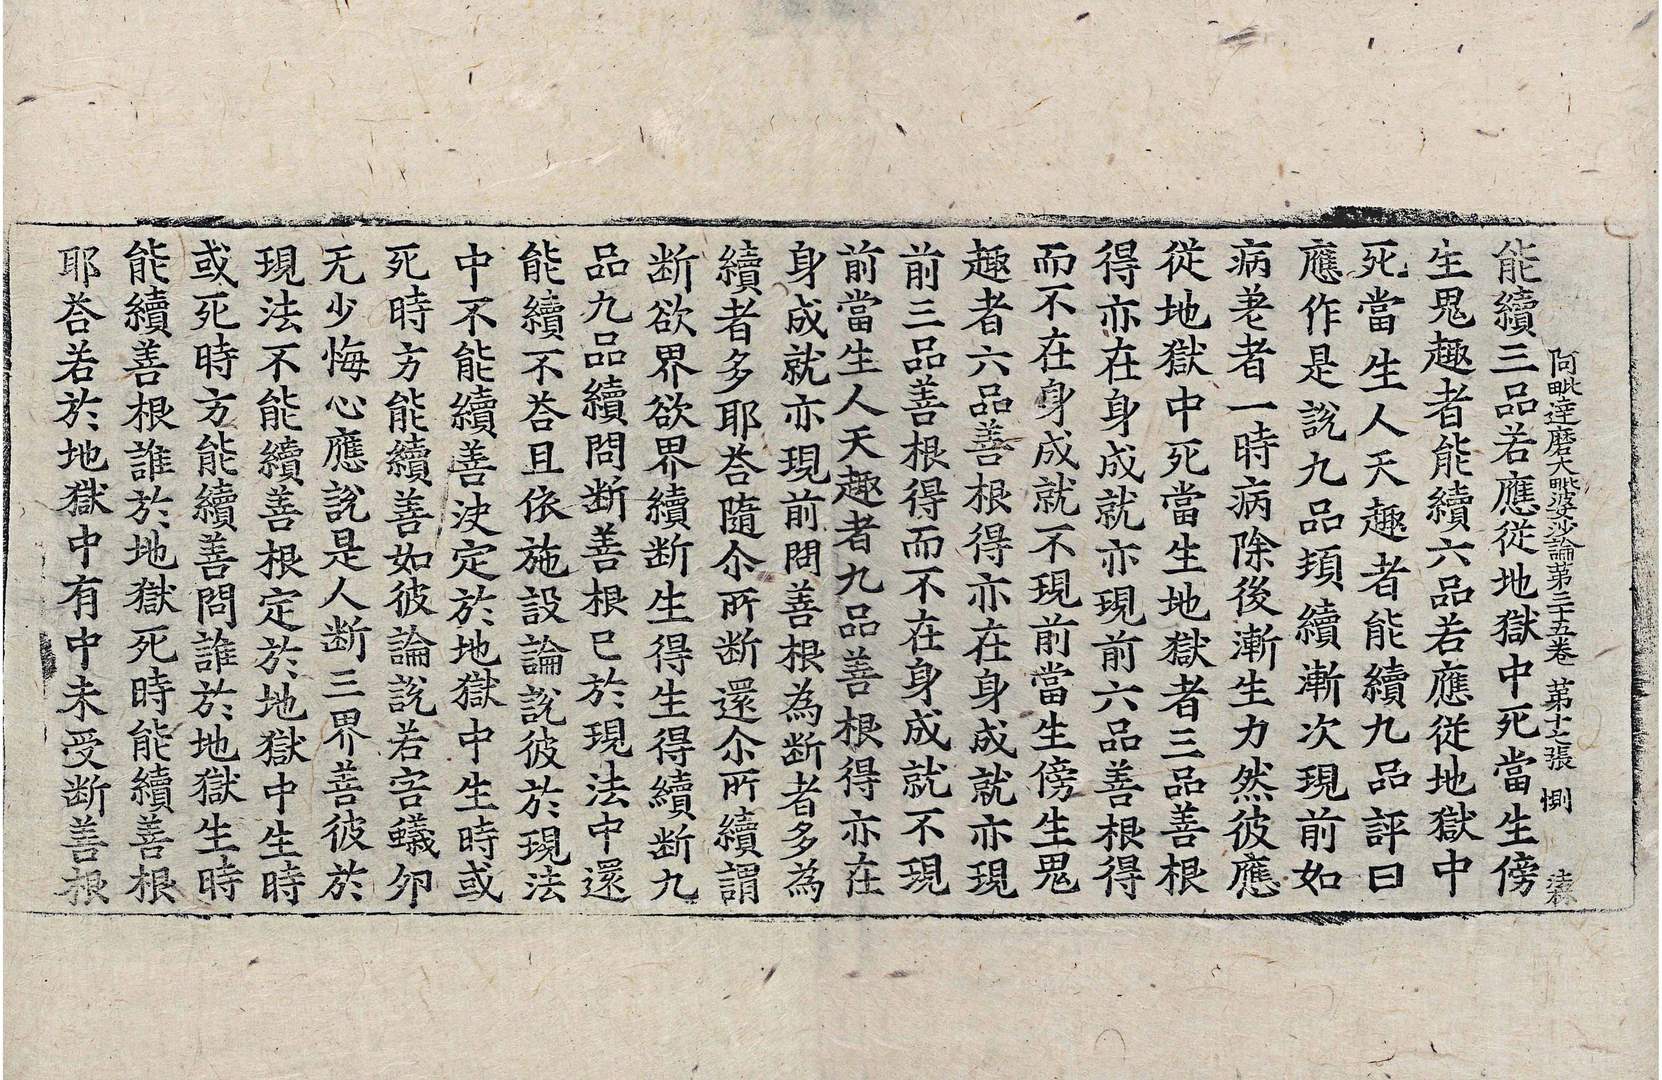 阿毗達磨大毗婆沙論第三十五卷 第十七張 惻
能續三品若應從地獄中死當生傍
生鬼趣者能續六品若應從地獄中
死當生人天趣者能續九品評曰
應作是說九品頓續漸次現前如
病差者一時病除後漸生力然彼應
從地獄中死當生地獄者三品善根
得亦在身成就亦現前六品善根得
而不在身成就不現前當生傍生鬼
趣者六品善根得亦在身成就亦現
前三品善根得而不在身成就不現
前當生人天趣者九品善根得亦在
身成就亦現前問善根為断者多為
續者多耶荅隨尒所断還尒所續謂
断欲界欲界續断生得生得續断九
品九品續問断善根已於現法中還
能續不荅且依施設論說彼於現法
中不能續善决定於地獄中生時或
死時方能續善如彼論說若害蟻卵
无少悔心應說是人断三界善彼於
現法不能續善根定於地獄中生時
或死時方能續善問誰於地獄生時
能續善根誰於地獄死時能續善根
耶荅若於地獄中有中未受断善根